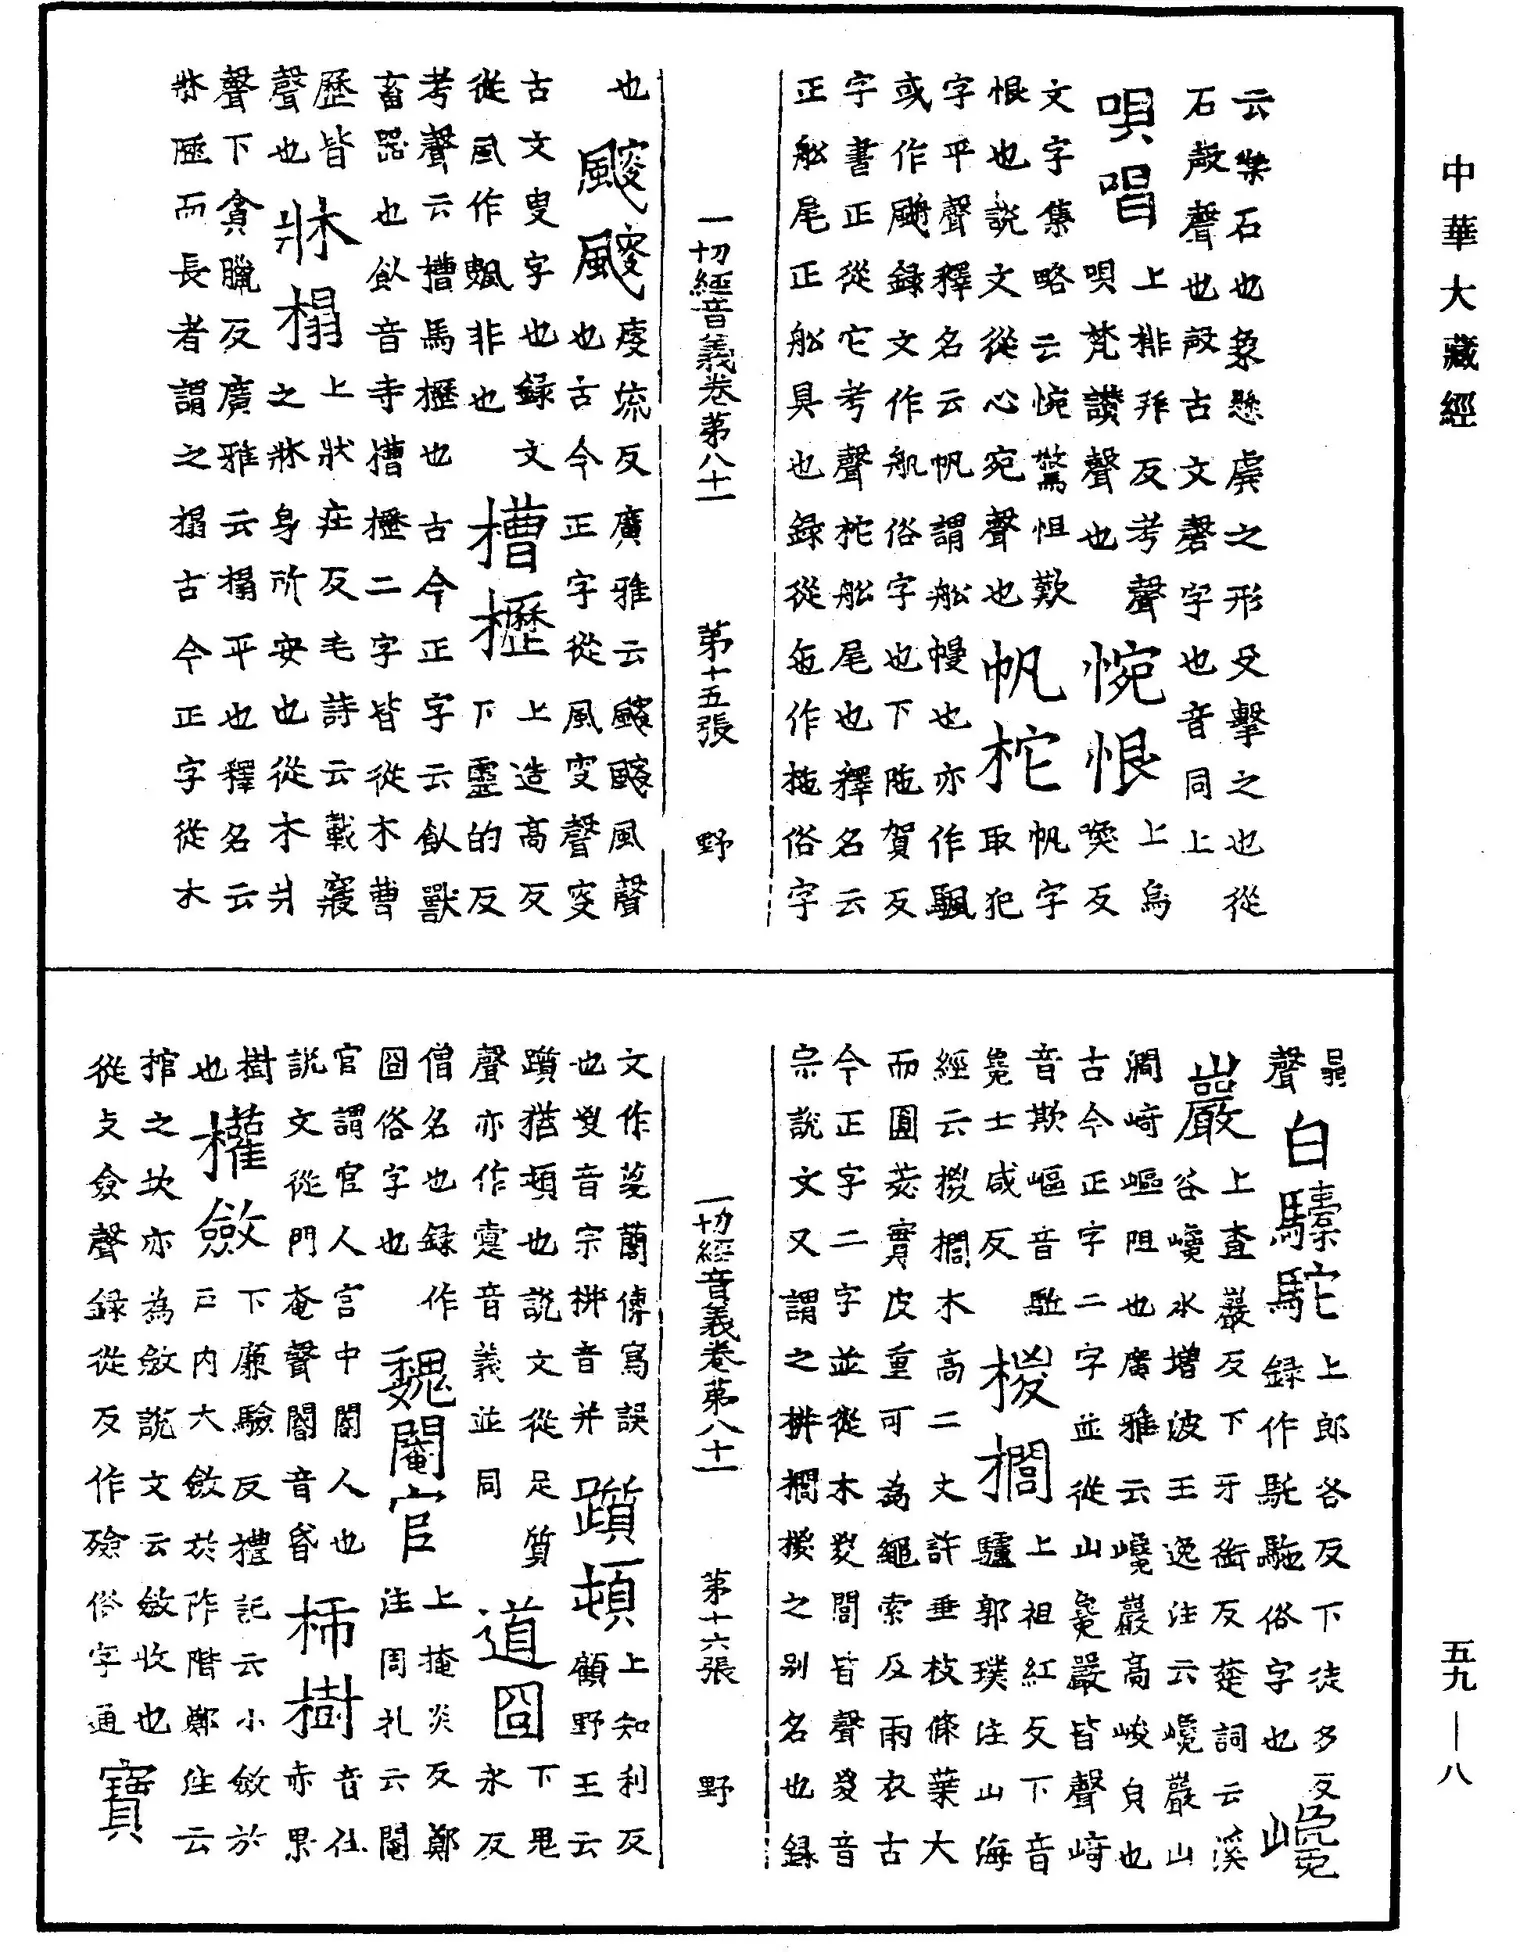 中華大藏經
云樂石也象懸虡之形殳擊之也從
石殸聲也殸古文磬字也音同上
唄唱 上排拜反考聲
唄梵讚聲也 惋恨 上烏
喚反
文字集略云惋驚怛歎 帆字
恨也說文從心宛聲也 帆柁 取犯
字平聲釋名云帆謂船幔也亦作颿
或作颿録文作帆俗字也下陁賀反
字書正從它考聲柁船尾也釋名云
正船尾正船具也録從㐌作拖俗字
一切經音義卷第八十一 第十五張 野
也 颼颼 廋流反廣雅云颼颼風聲
也古今正字從風叜聲叜
古文叟字也録文
從風作颾非也 槽櫪 上造高反
下靈的反
考聲云槽馬櫪也古今正字云飤獸
畜器也飤音寺槽櫪二字皆從木曹
歷皆 牀榻 上狀庄反毛詩云載寢
聲也 之牀身所安也從木爿
聲下貪臘反廣雅云榻平也釋名云
牀陿而長者謂之榻古今正字從木
㬱
聲 白驝駝 上郎各反下徒多反
録作馲駞俗字也 巉
巖 上査巖反下牙銜反楚詞云溪
谷巉水增波王逸注云巉巖山
澗崎嶇阻也廣雅云巉巖高峻皃也
古今正字二字並從山毚嚴皆聲崎
音欺嶇音駈 椶櫚 上祖紅反下音
毚士咸反 驢郭璞注山海
經云椶櫚木高二丈許垂枝條葉大
而圓茇實皮重可為繩索及雨衣古
今正字二字並從木㚇閭皆聲㚇音
宗說文又謂之栟櫚椶之別名也録
一切經音義卷第八十一 第十六張 野
文作䔋䕡傳寫誤 躓頓 上知利反
也㚇音宗栟音并 顧野王云
躓猶頓也說文從足質 道囧 下思
聲亦作疐音義並同 永反
僧名也録作 魏閹官 上掩炎反鄭
囧俗字也 注周礼云閹
官謂官人宫中閽人也 柿樹 音仕
說文從門奄聲閽音昏 赤果
樹 權斂 下廉驗反禮記云小斂於
也 戶内大斂於阼階鄭注云
棺之坎亦為斂說文云斂收也
從攴僉聲録從反作殮俗字通 寶
五九—八